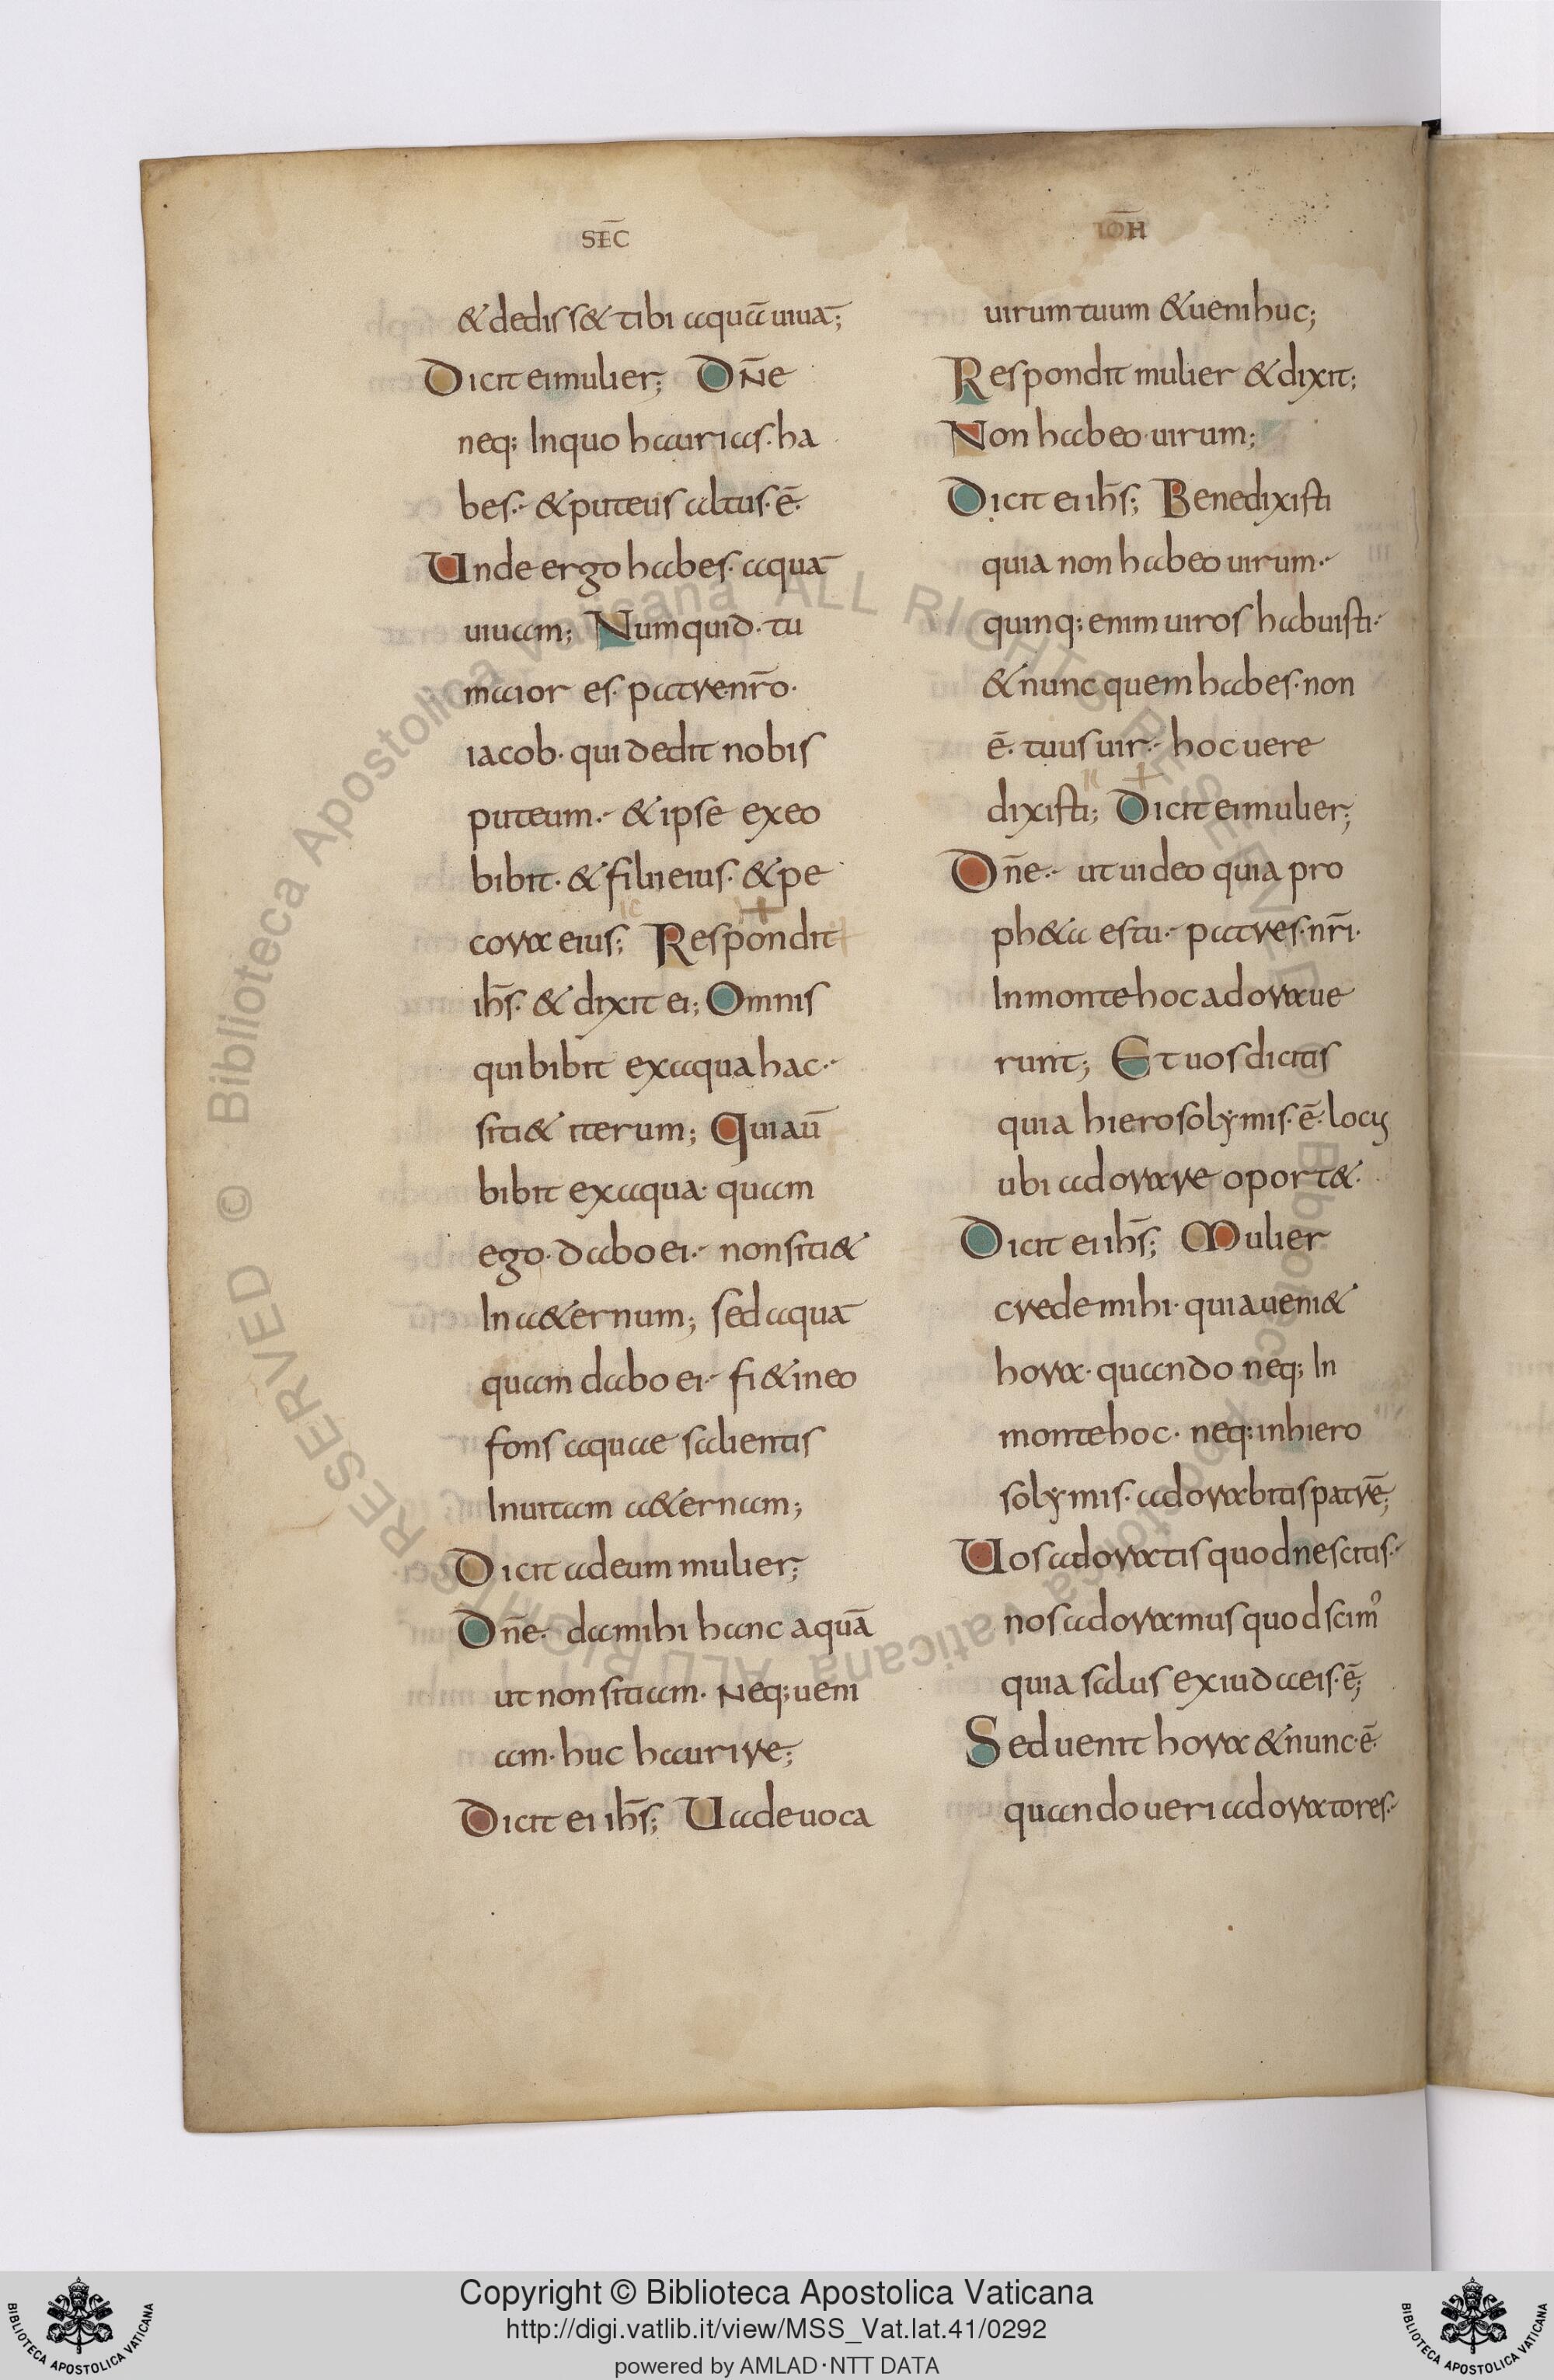 SEC̄
& dediss& tibi aquā uiuā;
Dicit ei mulier; Dn̄e
neq; In quo haurias· ha
bes·- & puteus altus· ē·
Unde ergo habes· aquā
uiuam; Numquid· tu
maior es· patre nr̄o·
iacob· qui dedit nobis
puteum·- & ipse ex eo
bibit· & filii eius· & pe
cora eius; Respondit
ih̄s· & dixit ei; Omnis
qui bibit ex aqua hac·-
siti& iterum; Qui aū
bibit ex aqua· quam
ego· dabo ei·- non siti&
In a&ernum; sed aquā
quam dabo ei·- fi& in eo
fons aquae salientis
In uitam a&ernam;
Dicit ad eum mulier;
Dn̄e·- da mihi hanc aquā
ut non sitiam· Neq; ueni
am· huc haurire;
Dicit ei ih̄s; Uade uoca
IOH̄
uirum tuum & ueni huc;
Respondit mulier & dixit;
Non habeo· uirum;
Dicit ei ih̄s; Bene dixisti
quia non habeo uirum·-
quinq; enim uiros habuisti·-
& nunc quem habes· non
ē· tuus uir·- hoc uere
dixisti; Dicit ei mulier;
Dn̄e·- ut uideo quia pro
ph&a es tu·- patres· nr̄i·
In monte hoc adoraue
runt; Et uos dicitis
quia hierosolymis· ē· locus
ubi adorare oport&·
Dicit ei ih̄s; Mulier
crede mihi· quia ueni&
hora· quando neq; In
monte hoc· neq; in hiero
solymis· adorabitis patrē;
Uos adoratis quod nescitis·-
nos adoramus quod scim᾽
quia salus ex iudaeis· ē;
Sed uenit hora & nunc· ē·
quando ueri adoratores·-
© Biblioteca Apostolica Vaticana ALL RIGHTS RESERVED © Biblioteca Apostolica Vaticana ALL RIGHTS RESERVED
Copyright © Biblioteca Apostolica Vaticana
http://digi.vatlib.it/view/MSS_Vat.lat.41/0292
powered by AMLAD·NTT DATA
BIBLIOTECA APOSTOLICA VATICANA
BIBLIOTECA APOSTOLICA VATICANA